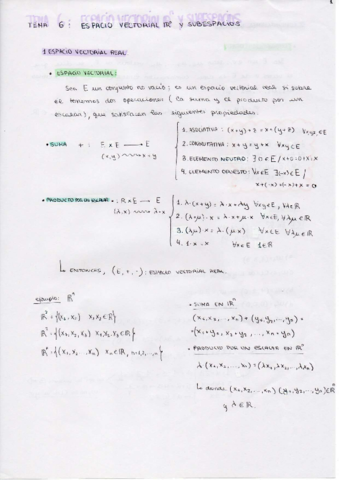 TEMA 6: ESPACIO VECTORIAL ℝⁿ Y SUBESPACIOS
1 ESPACIO VECTORIAL REAL
• ESPACIO VECTORIAL:
Sea E un conjunto no vacío; es un espacio vectorial real si sobre
él tenemos dos operaciones (la suma y el producto por un
escalar), que satisfacen las siguientes propiedades:
• SUMA + : E x E → E
(x,y) ⟿ x+y
1. ASOCIATIVA: (x+y)+z = x+(y+z) ∀x,y,z∈E
2. CONMUTATIVA: x+y=y+x ∀x,y∈E
3. ELEMENTO NEUTRO: ∃0∈E / x+0=0+x=x
4. ELEMENTO OPUESTO: ∀x∈E ∃(-x)∈E /
x+(-x)=(-x)+x=0
• PRODUCTO POR UN ESCALAR · : ℝ x E → E
(λ,x) ⟿ λ·x
1. λ·(x+y)=λ·x+λy ∀x,y∈E, ∀λ∈ℝ
2. (λ+μ)·x=λ·x+μ·x ∀x∈E, ∀λ,μ∈ℝ
3. (λμ)·x=λ·(μ·x) ∀x∈E ∀λ,μ∈ℝ
4. 1·x=x ∀x∈E 1∈ℝ
↳ ENTONCES, (E,+,·): ESPACIO VECTORIAL REAL.
ejemplo: ℝⁿ
ℝ²={(x₁,x₂) x₁,x₂∈ℝ}
ℝ³={(x₁,x₂,x₃) x₁,x₂,x₃∈ℝ}
• SUMA EN ℝⁿ
(x₁,x₂,...,xₙ)+(y₁,y₂,...,yₙ)=
=(x₁+y₁,x₂+y₂,...,xₙ+yₙ)
• PRODUCTO POR UN ESCALAR EN ℝⁿ
λ(x₁,x₂,...,xₙ)=(λx₁,λx₂,...,λxₙ)
↳ donde (x₁,x₂,...,xₙ) (y₁,y₂,...,yₙ)∈ℝⁿ
y λ∈ℝ.